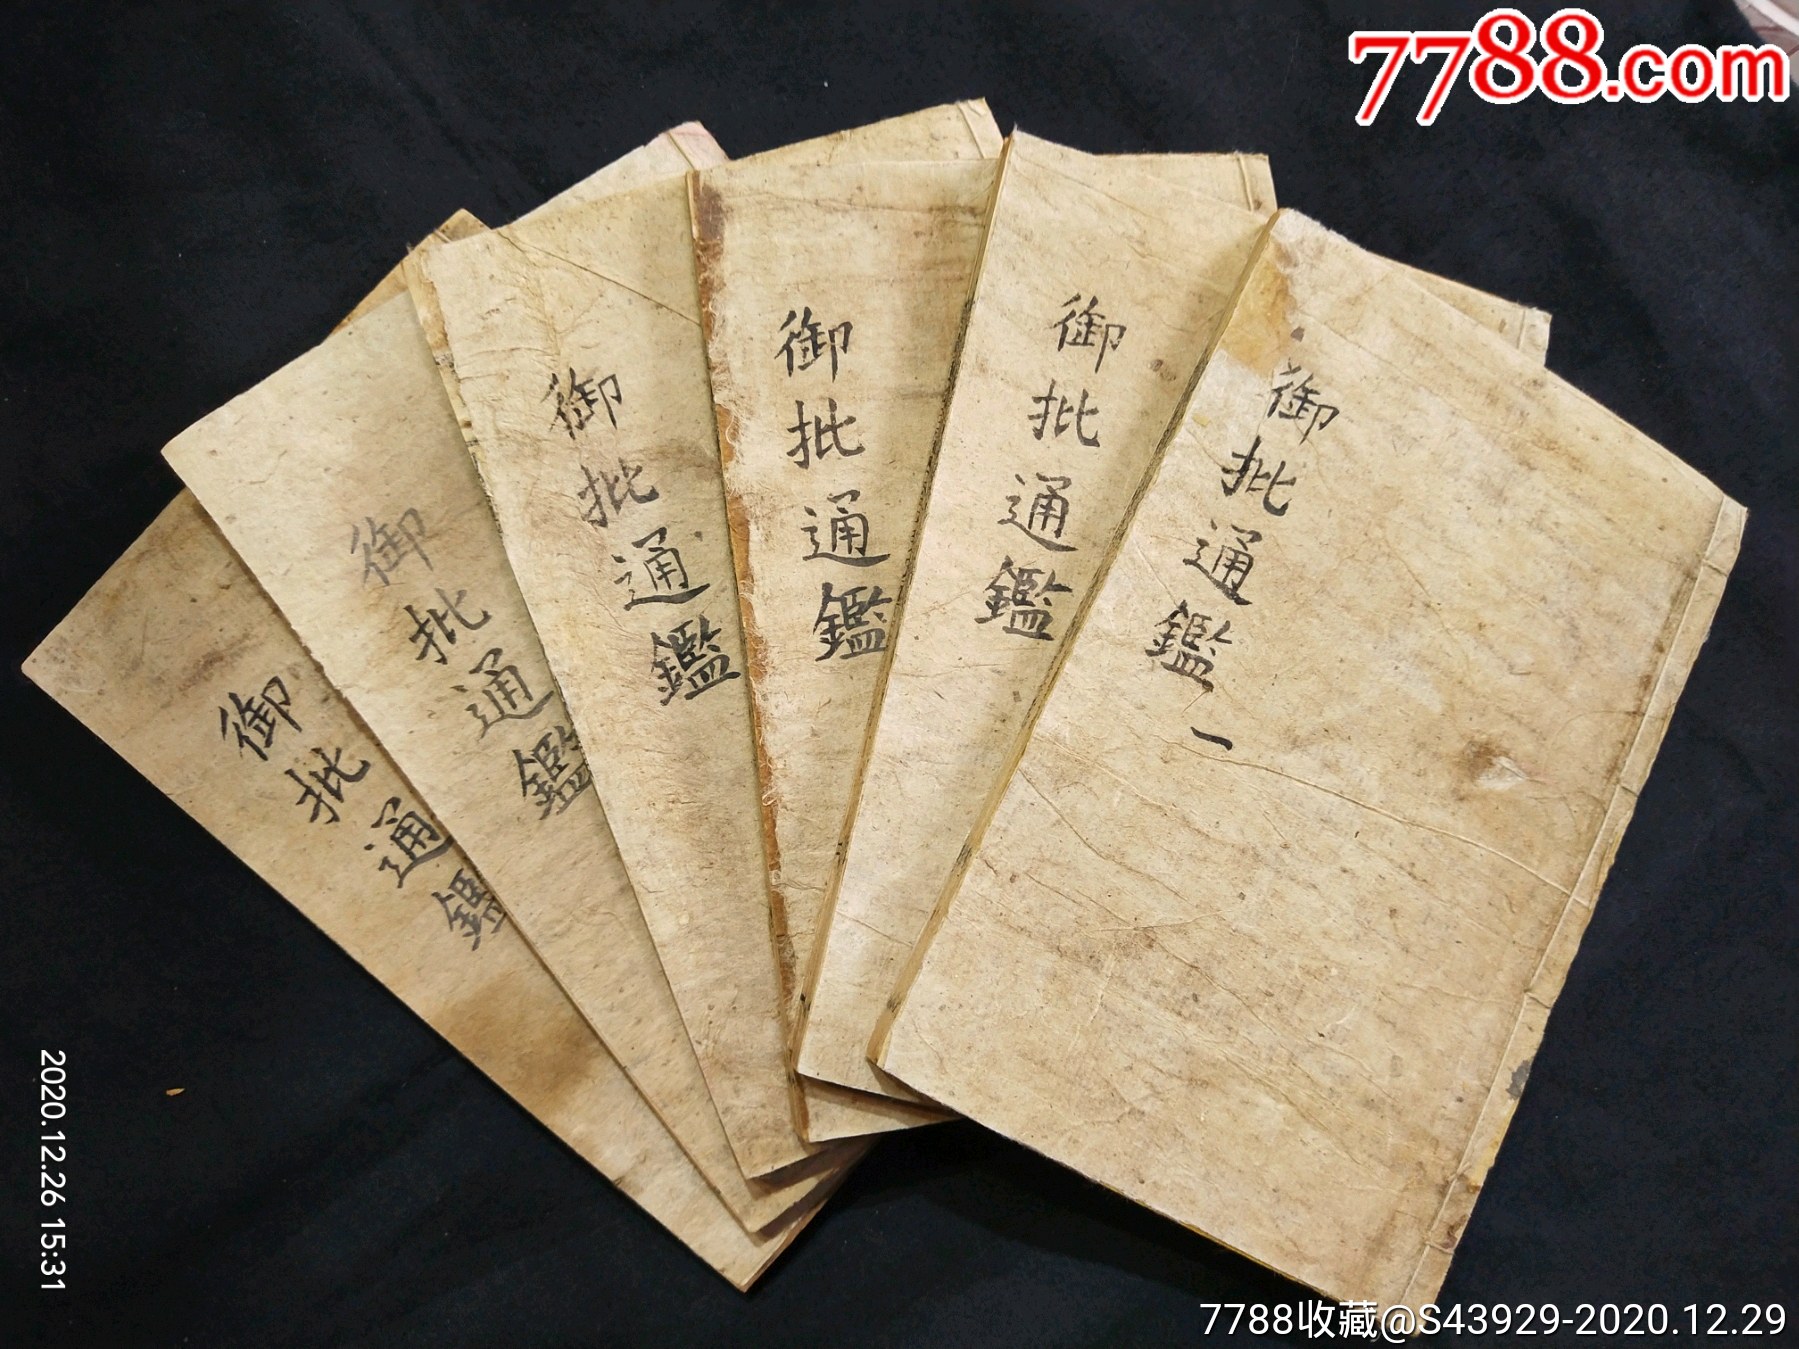 7788.com
御批通鑑
御批通鑑
御批通鑑
御批通鑑
御批通鑑
御批通鑑一
2020.12.26 15:31
7788收藏@S43929-2020.12.29